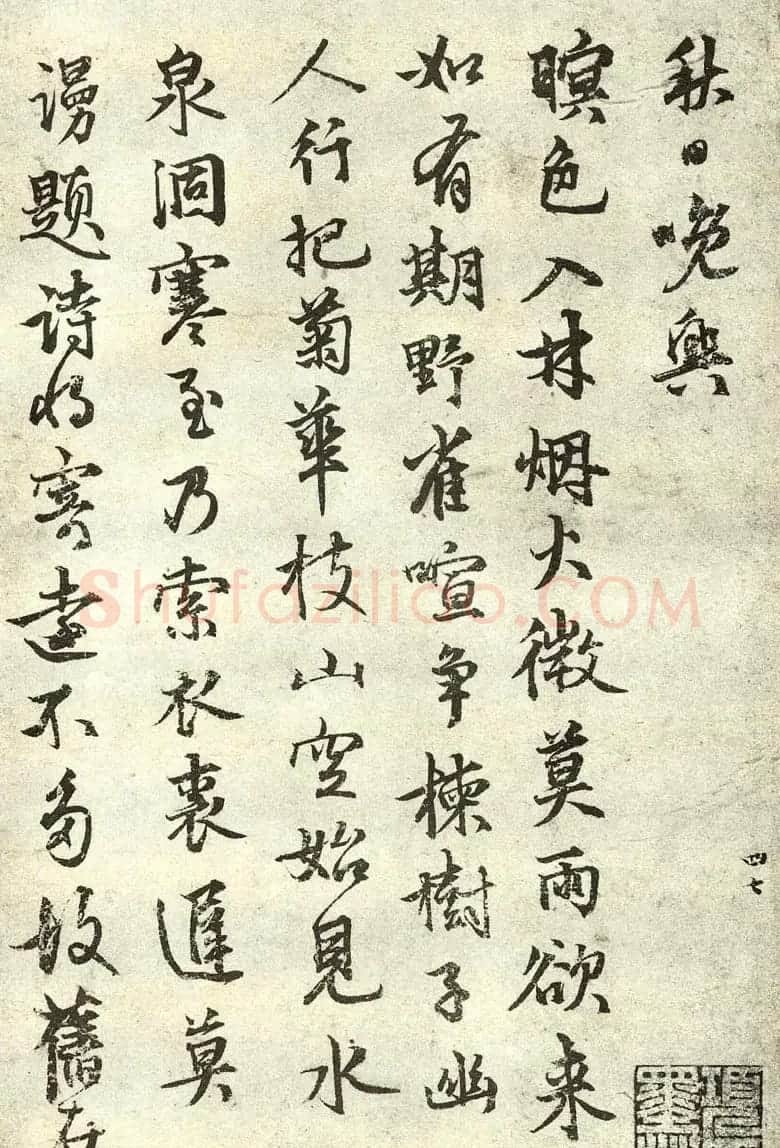 秋日晚興
暝色入林烟火微莫雨欲来
如有期野雀喧争楝樹子幽
人行把菊華枝山空始見水
泉涸寒至乃索衣裘遲莫
謾題詩将寄遠不多故舊
四七
Shufaziliao.COM